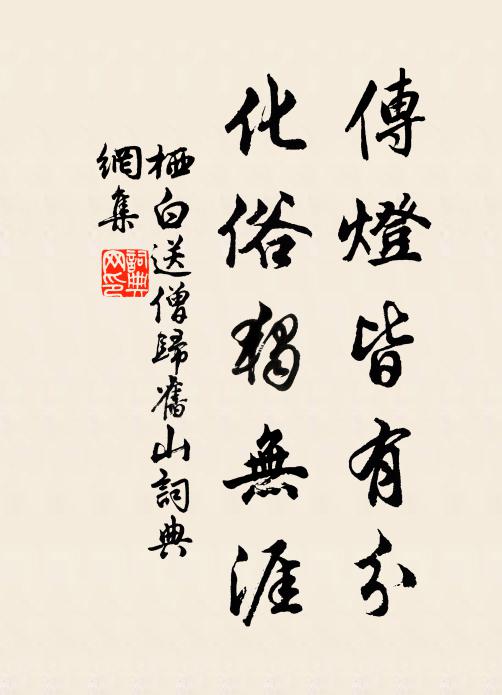 傳燈皆有分
化俗獨無涯
栖白送僧歸舊山詞典
網集
詞典
网印